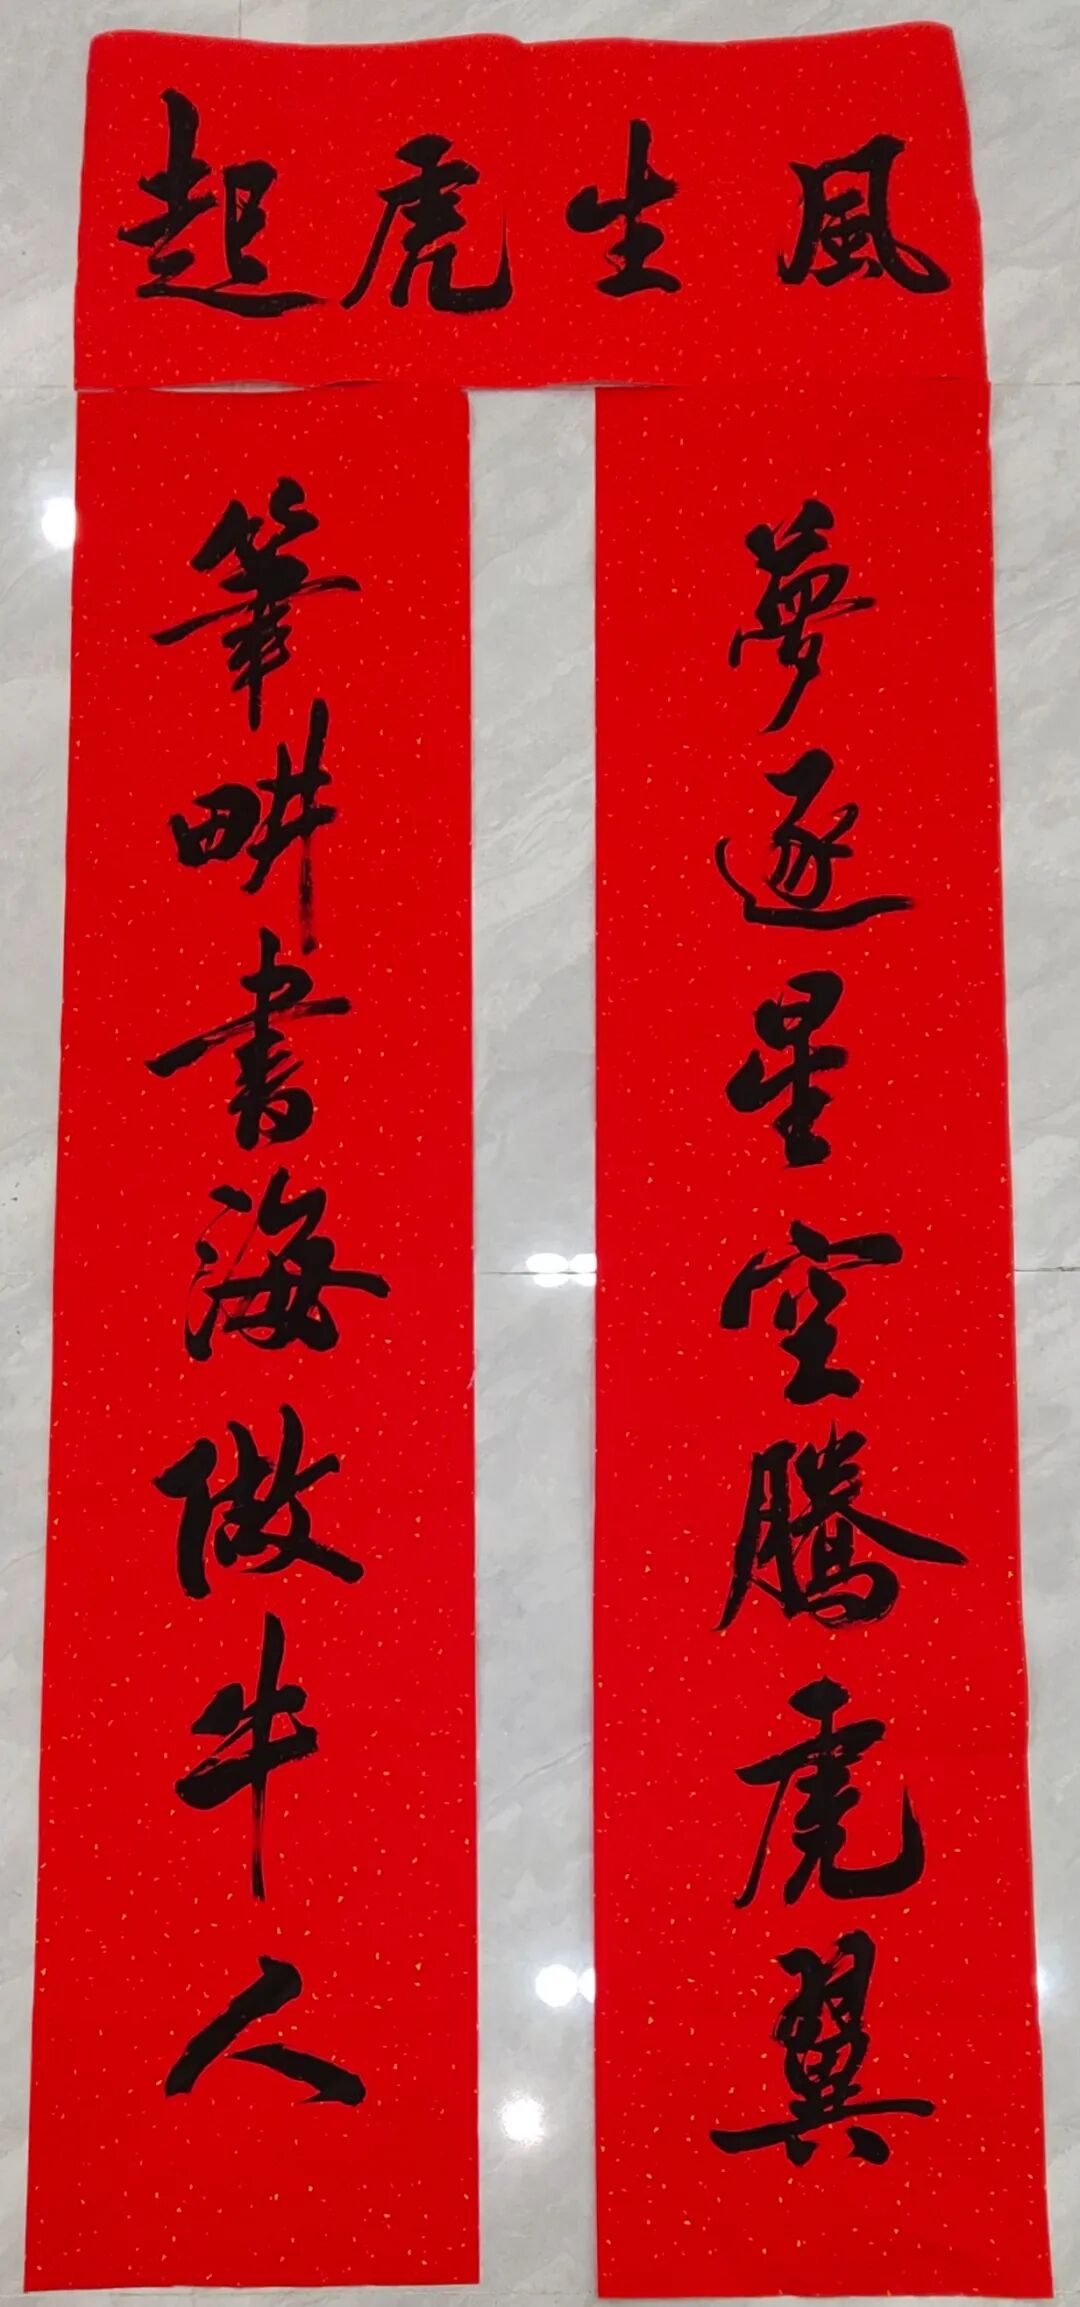 風生虎起
夢逐星空騰虎翼
筆畊書海做牛人